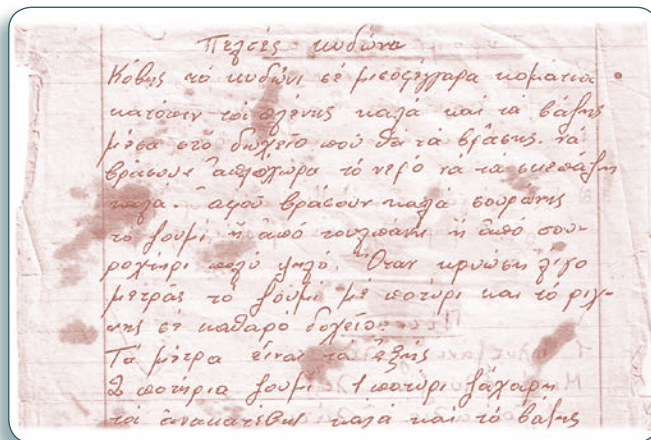 Πελτές κυδώνι
Κόβης τό κυδώνι σέ μισοφέγγαρα κομάτια
κατόπιν τά πλένης καλά καί τά βάζης
μέσα στό δοχείο πού θα τά βράσης. νά
βράσουν ἁπλόχωρα τό νερό νά τα σκεπάζη
καλά. ἀφού βράσουν καλά σουρώνης
τό ζουμί ἤ ἀπό τουλπάνι ἤ ἀπό σου-
ρωτήρι πολύ ψηλό. Ὅταν κρυώση λίγο
μετράς τό ζουμί μέ ποτύρι και τό ριχ-
νης σέ καθαρό δοχείο.
Τά μέτρα είναι τά ἑξής
2 ποτήρια ζουμί 1 ποτύρι ζάχαρη
τά ἀνακατέβης καλά καί τό βάζης